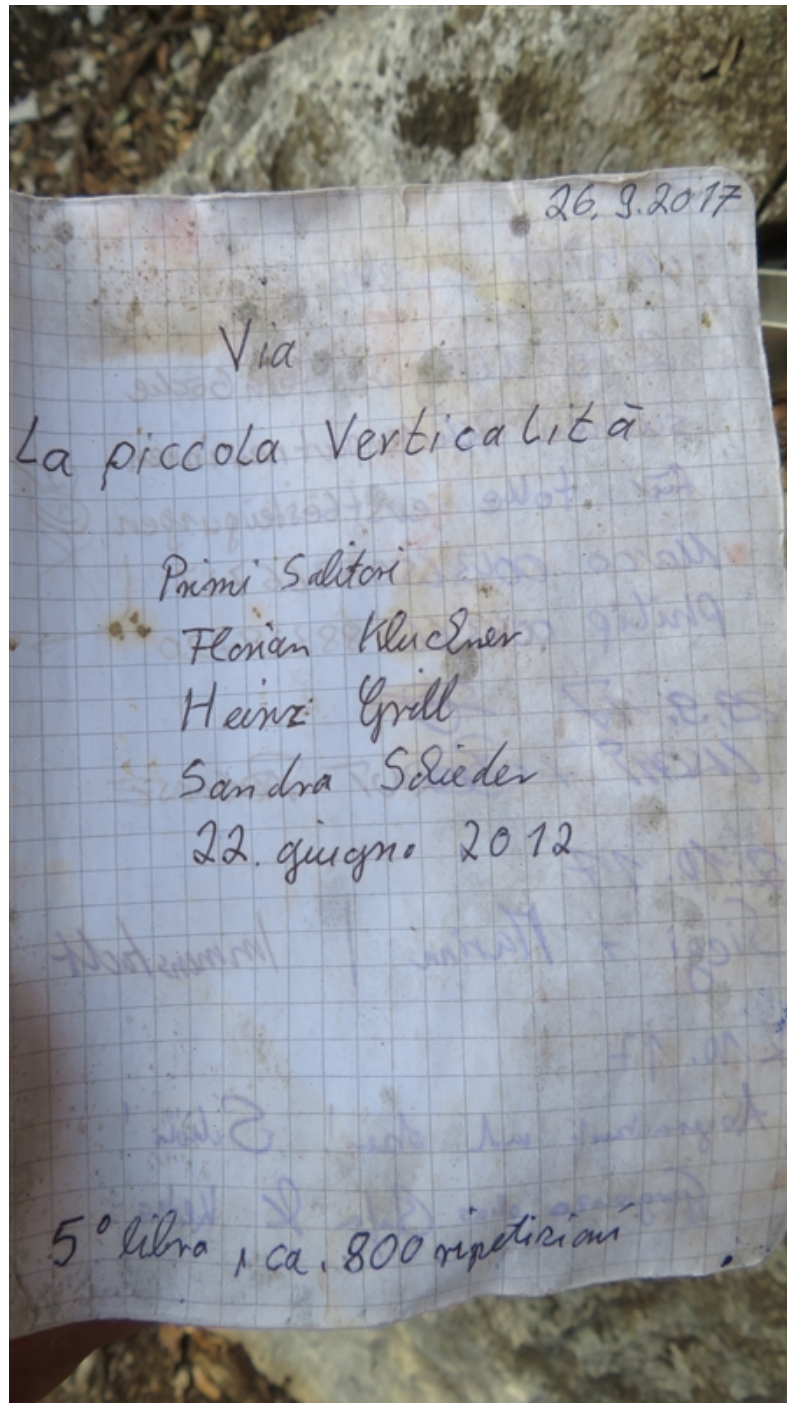 26.9.2017
Via
La piccola Verticalità
Primi Salitori
Florian Kluckner
Heinz Grill
Sandra Schieder
22. giugno 2012
5° libro, ca. 800 ripetizioni